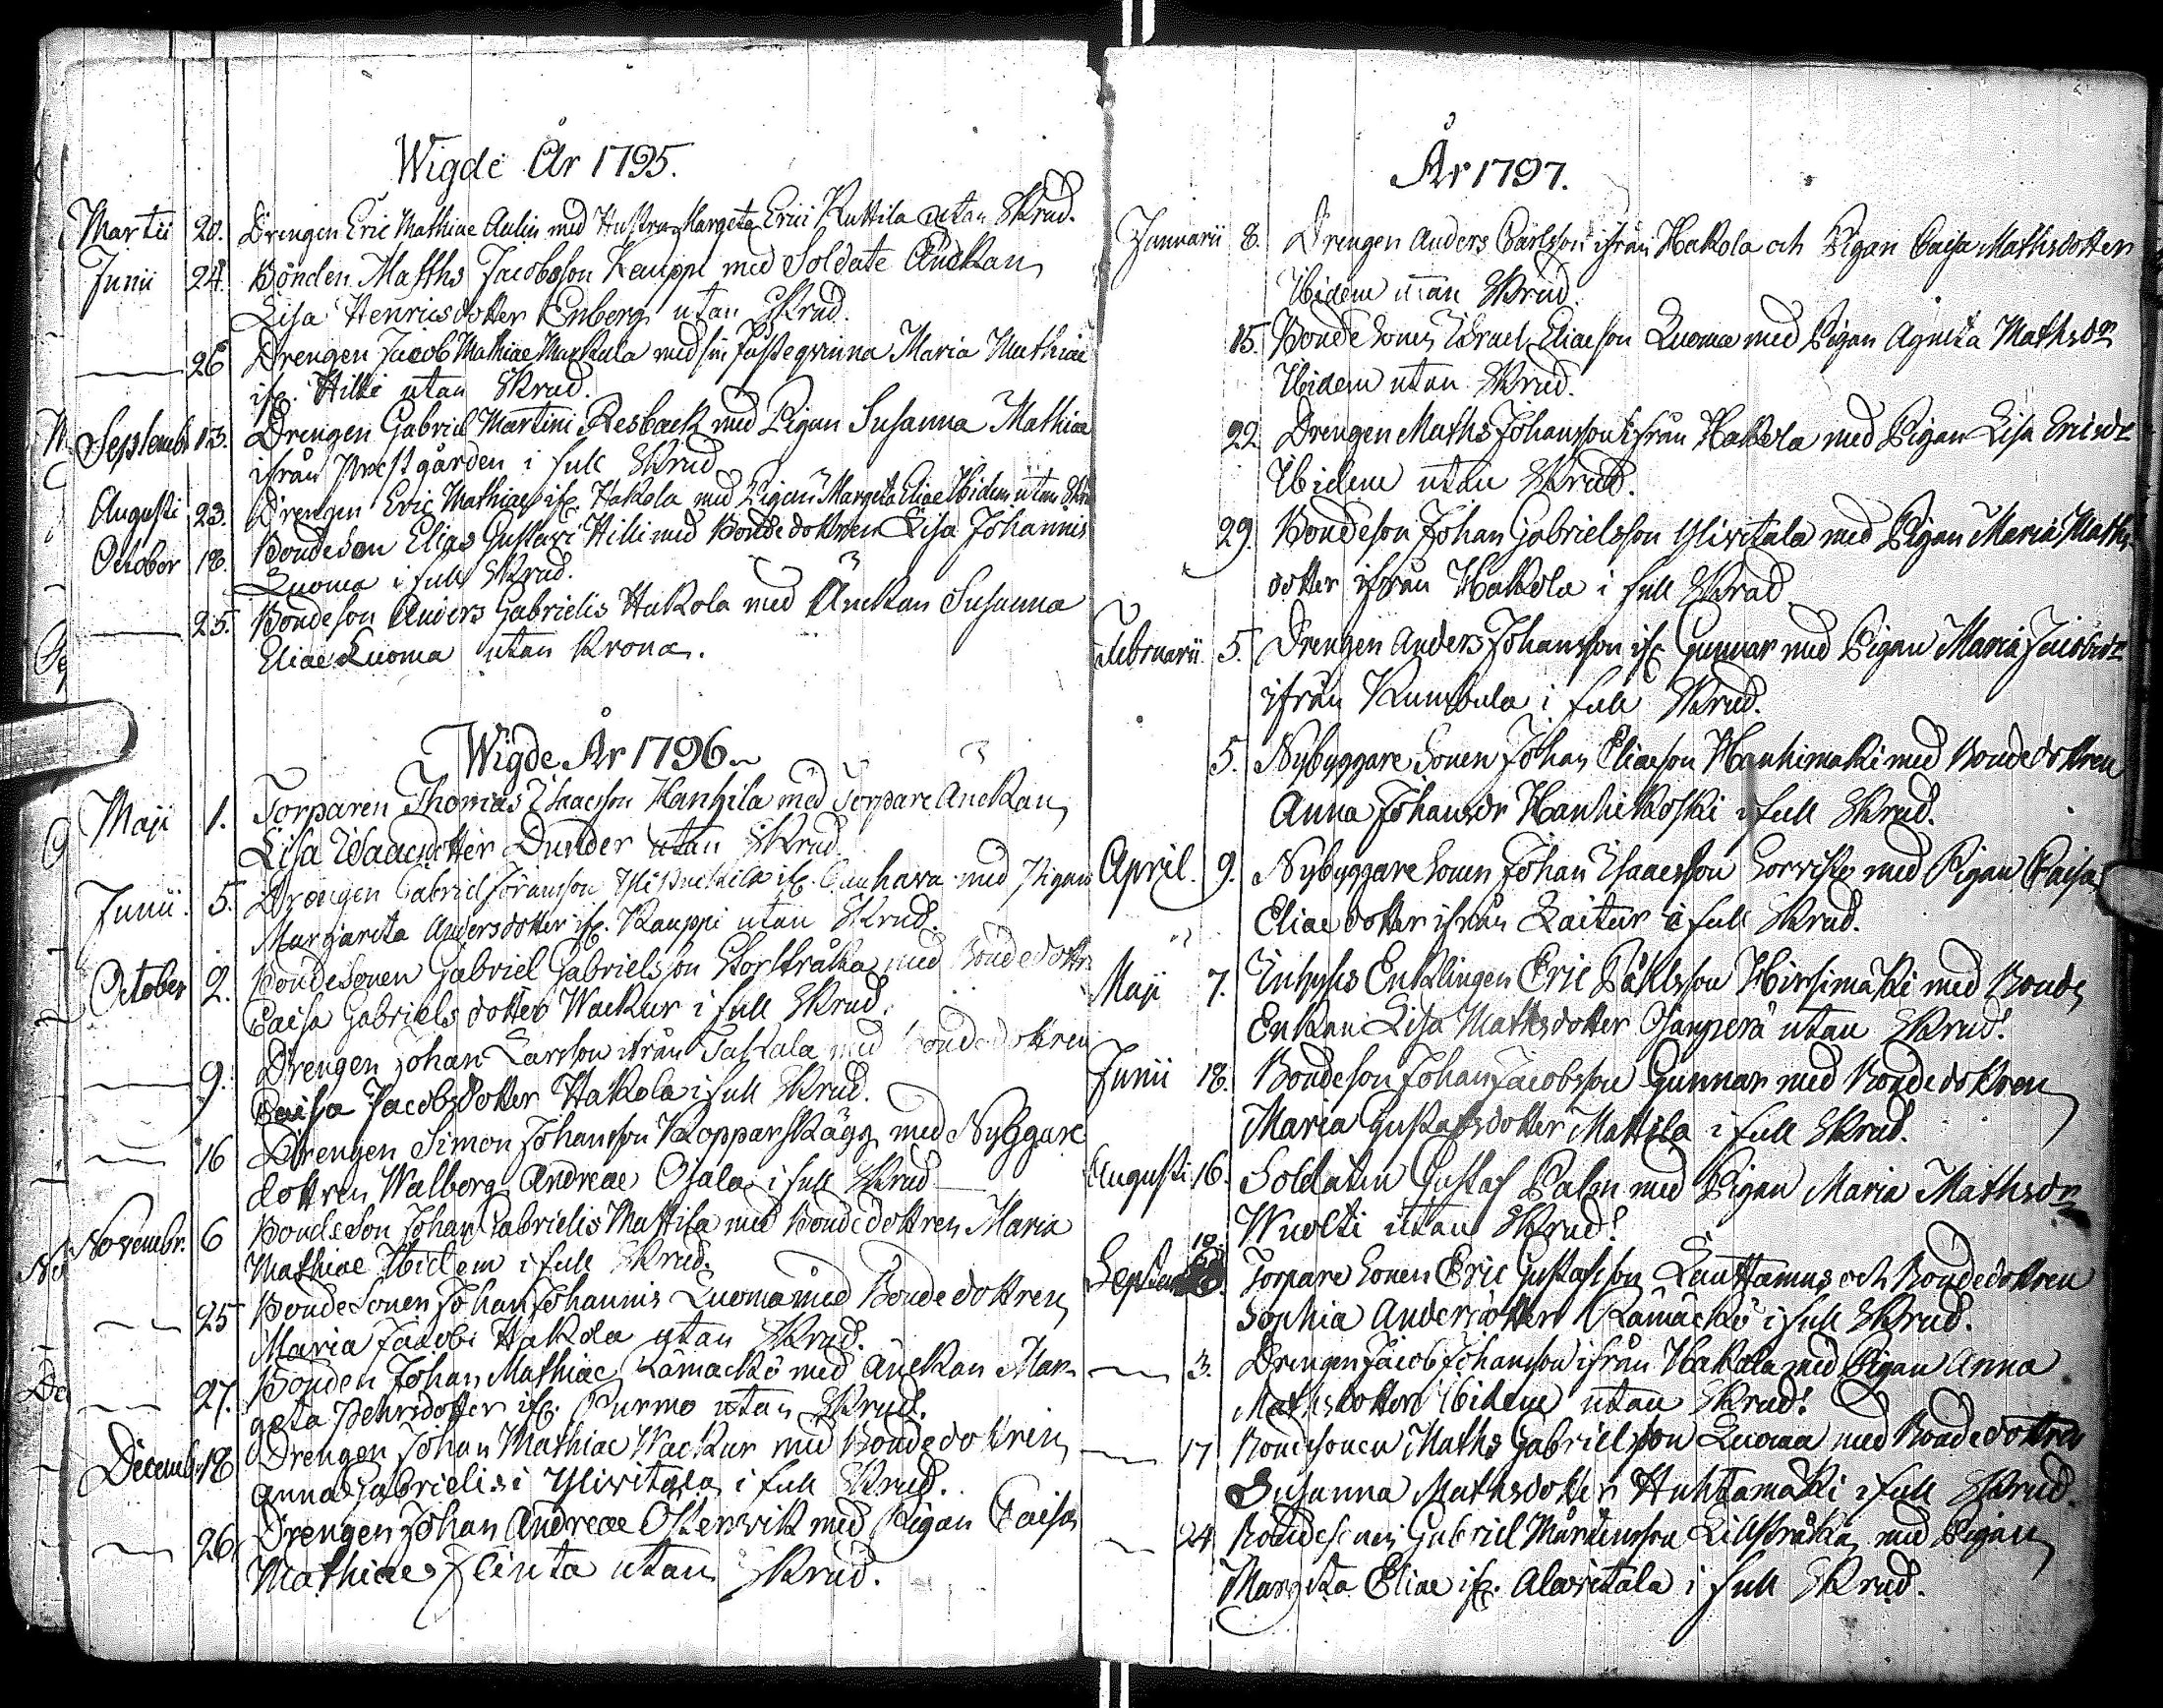 Wigde År 1795.
Martii 20. Drengen Eric Mathiae Aulin med Hustru Margeta Erici Kuttila utan Skrud.
Junii 24. Bonden Matths Jacobsson Kauppi med Soldate Änckan
Lisa Henricsdotter Enberg utan Skrud.
26 Drengen Jacob Mathiae Markula med sin fästeqvinna Maria Mathiae
ifr. Hilli utan Skrud.
Septembr 13. Drengen Gabriel Martini Resback med Pigan Susanna Mathiae
ifrån Prestgården i full Skrud
Augusti 23. Drengen Eric Mathiae ifr. Hakola med Pigan Margeta Eliae Ibidem utan Skru
October 18. Bondeson Elias Gustavi Hilli med Bondedottren Lisa Johannis
Luoma i full Skrud.
25. Bondeson Anders Gabrielis Hakola med Änckan Susanna
Eliae Luoma utan Krona.
Wigde År 1796.
Maji 1. Torparen Thomas Isaacsson Kanhila med Torpare Änckan
Lisa Isaacsdotter Dunder utan Skrud.
Junii. 5. Drengen Gabriel Göransson ifr. med Pigan
Margareta Andersdotter ifr. Kauppi utan Skrud.
October 2. Bondesonen Gabriel Gabrielsson Storstråka med Bondedottr
Caisa Gabriels dotter Wackur i full Skrud.
9. Drengen Johan Larsson ifrån Taskala med Bondedottren
Caisa Jacobsdotter Hakola i full Skrud.
16 Drengen Simon Johansson Kopparskägg med Nybggare
dottren Walborg Andreae Ojala i full Skrud
Novembr. 6 Bondeson Johan Gabrielis Mattila med Bondedottren Maria
Mathiae Ibidem i full Skrud.
25 Bondesonen Johan Johannis Luoma med Bondedottren
Maria Jacobi Hakola utan Skrud.
27. Bonden Johan Mathiae Rämäckö med Änckan Mar-
geta Pehrsdotter ifr. Purmo utan Skrud.
Decembr 18 Drengen Johan Mathiae Wackur med Bondedottren
Anna Gabrielis i Ylivitala i full Skrud.
26. Drengen Johan Andreae Ostervik med Pigan Caisa
Mathiae Flinta utan Skrud.
År 1797.
Januarii 8. Drengen Anders Carlsson ifrån Hakola och Pigan Caisa Mathsdotter
Ibidem utan Skrud.
15. Bondesonen Israel Eliaeson Luoma med Pigan Agneta Mathsdr
Ibidem utan Skrud.
22. Drengen Maths Johansson ifrån Hakola med Pigan Lisa Ericsdr
Ibidem utan Skrud.
29. Bondeson Johan Gabrielsson Ylivitala med Pigan Maria Maths-
dotter ifrån Hakola i full Skrud
Februarii 5. Drengen Anders Johansson ifr. Gunnar med Pigan Maria Jacobsdr
ifrån Kumbula i full Skrud.
5. Nybyggare Sonen Johan Eliaeson Hanhimaki med Bondedottren
Anna Johansdr Hanhikoski i full Skrud.
April. 9. Nybyggare Sonen Johan Isaacsson Sorvisto med Pigan Caisa
Eliae dotter ifrån Kaitur i full Skrud.
Maji 7. Inhyses Enklingen Eric Påhlsson Hirsimäki med Bonde
Enkan Lisa Mathsdotter Ojanperä utan Skrud.
Junii 18. Bondeson Johan Jacobsson Gunnar med Bondedottren
Maria Gustafsdotter Mattila i full Skrud.
Augusti 16. Soldaten Gustaf Palm med Pigan Maria Mathsdr
Wuolti utan Skrud.
Septem 10. Torpare Sonen Eric Gustafsson Lauttamus och Bondedottren
Sophia Andersdotter Rämäckö i full Skrud.
3. Drengen Jacob Johansson ifrån Hakola med Pigan Anna
Mathsdotter Ibidem utan Skrud.
17 Bondesonen Maths Gabrielsson Luoma med Bondedottren
Susanna Mathsdotter Huhtamäki i full Skrud.
24 Bondesonen Gabriel Mårtensson Lillstråka med Pigan
Margeta Eliae ifr. Alavitala i full Skrud.